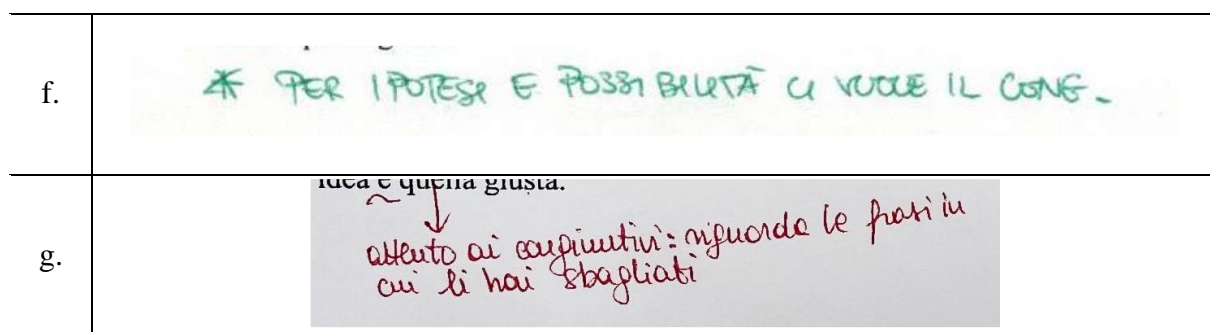 f.
* PER IPOTESI E POSSIBILITÀ CI VUOLE IL CONG.
g.
idea è quella giusta.
attento ai congiuntivi: riguarda le frasi in
cui li hai sbagliati